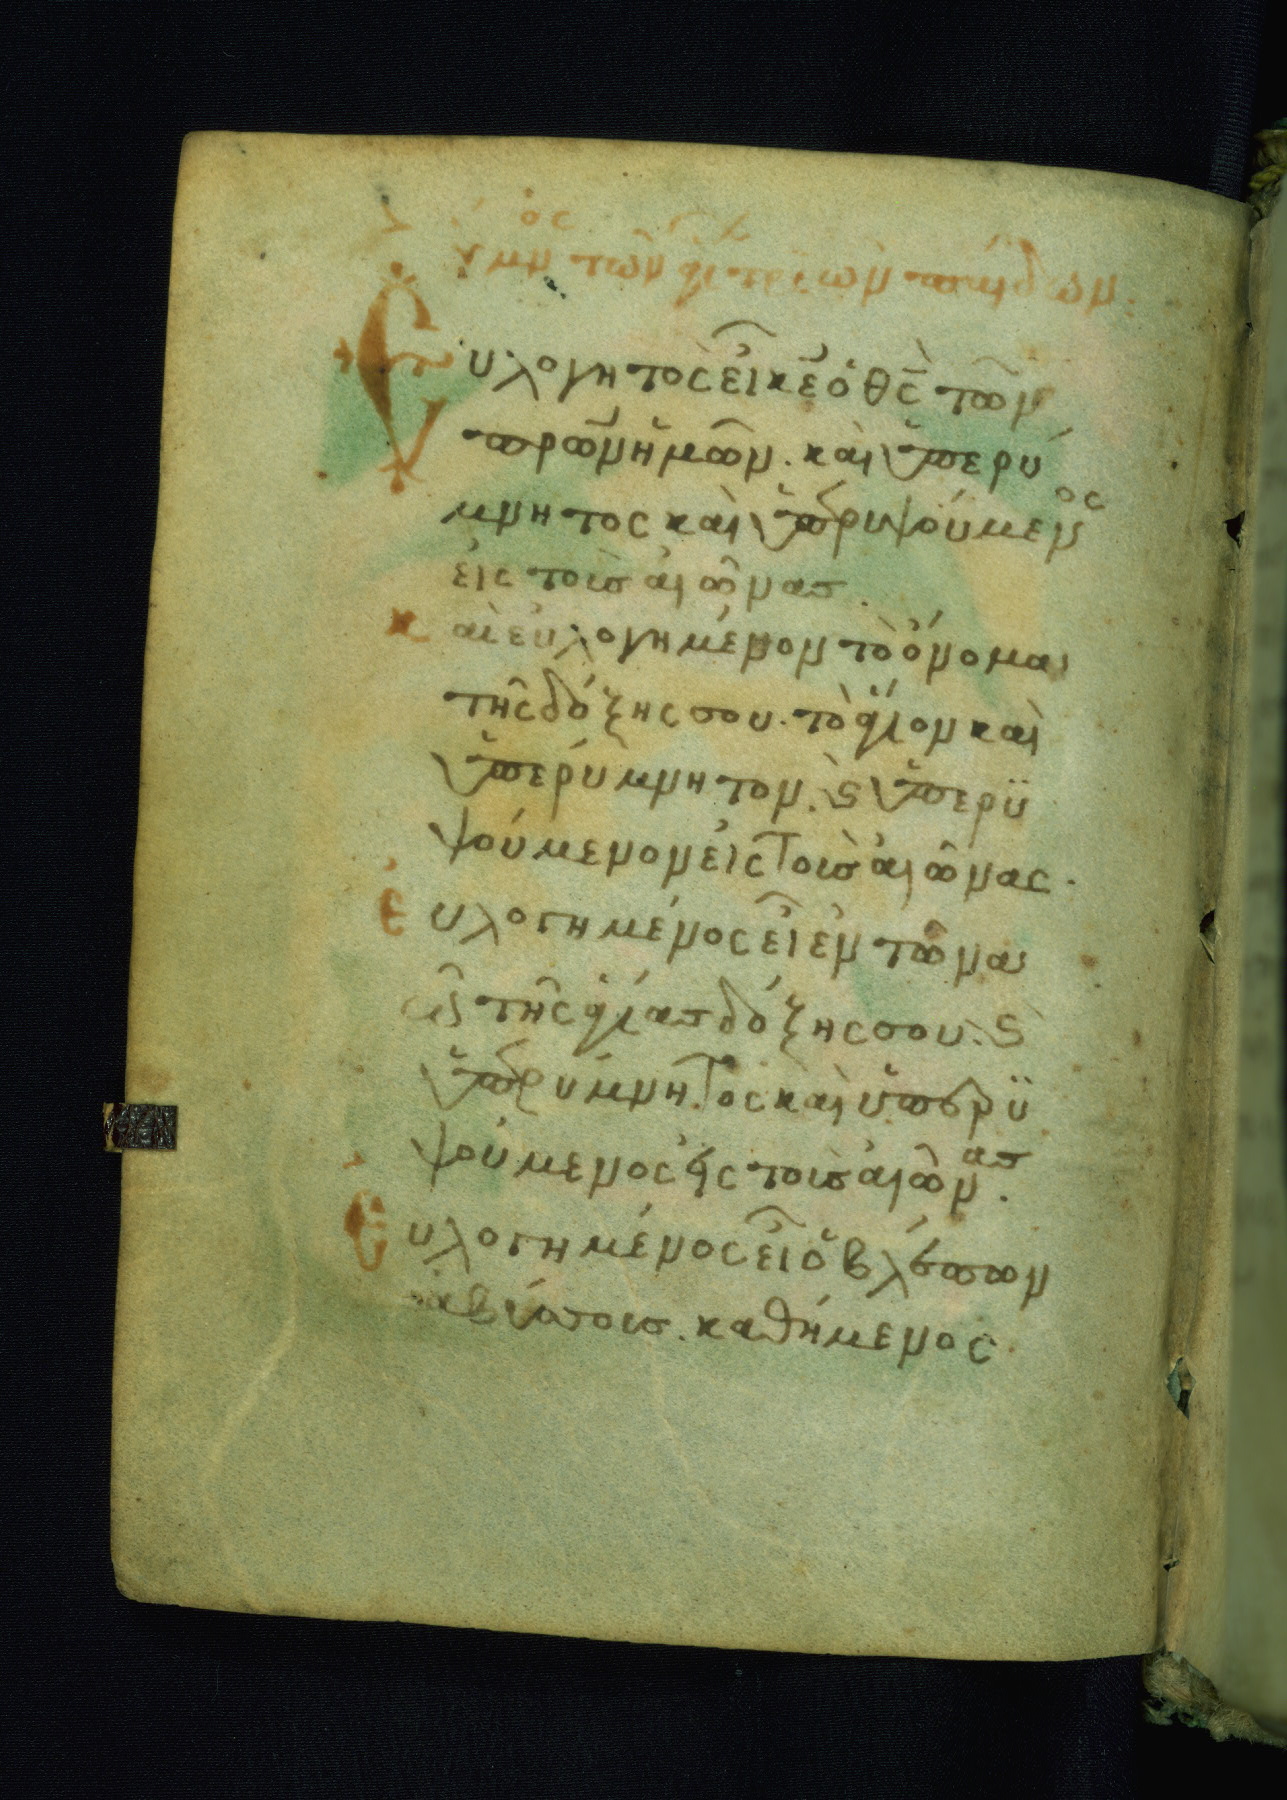 ὕμνος τῶν ἁγίων τριῶν παίδων.
Εὐλογητὸς εἶ κε̄ ὁ θς̄ τῶν
πρων ἡμῶν. καὶ ὑπερύ
μνητος καὶ ὑπερυψούμενος
εἰς τοὺς αἰῶνας.
καὶ εὐλογημένον τὸ ὄνομα
τῆς δόξης σου. τὸ ἅγιον καὶ
ὑπερύμνητον. ϛ ὑπερϋ
ψούμενον εἰς τοὺς αἰῶνας.
εὐλογημένος εἶ ἐν τῶ να
ῶ τῆς ἁγίας δόξης σου. ϛ
ὑπερύμνητος καὶ ὑπερϋ
ψούμενος εἰς τοὺς αἰῶνας.
Εὐλογημένος εἶ ὁ βλέπων
ἀβύσσους. καθήμενος